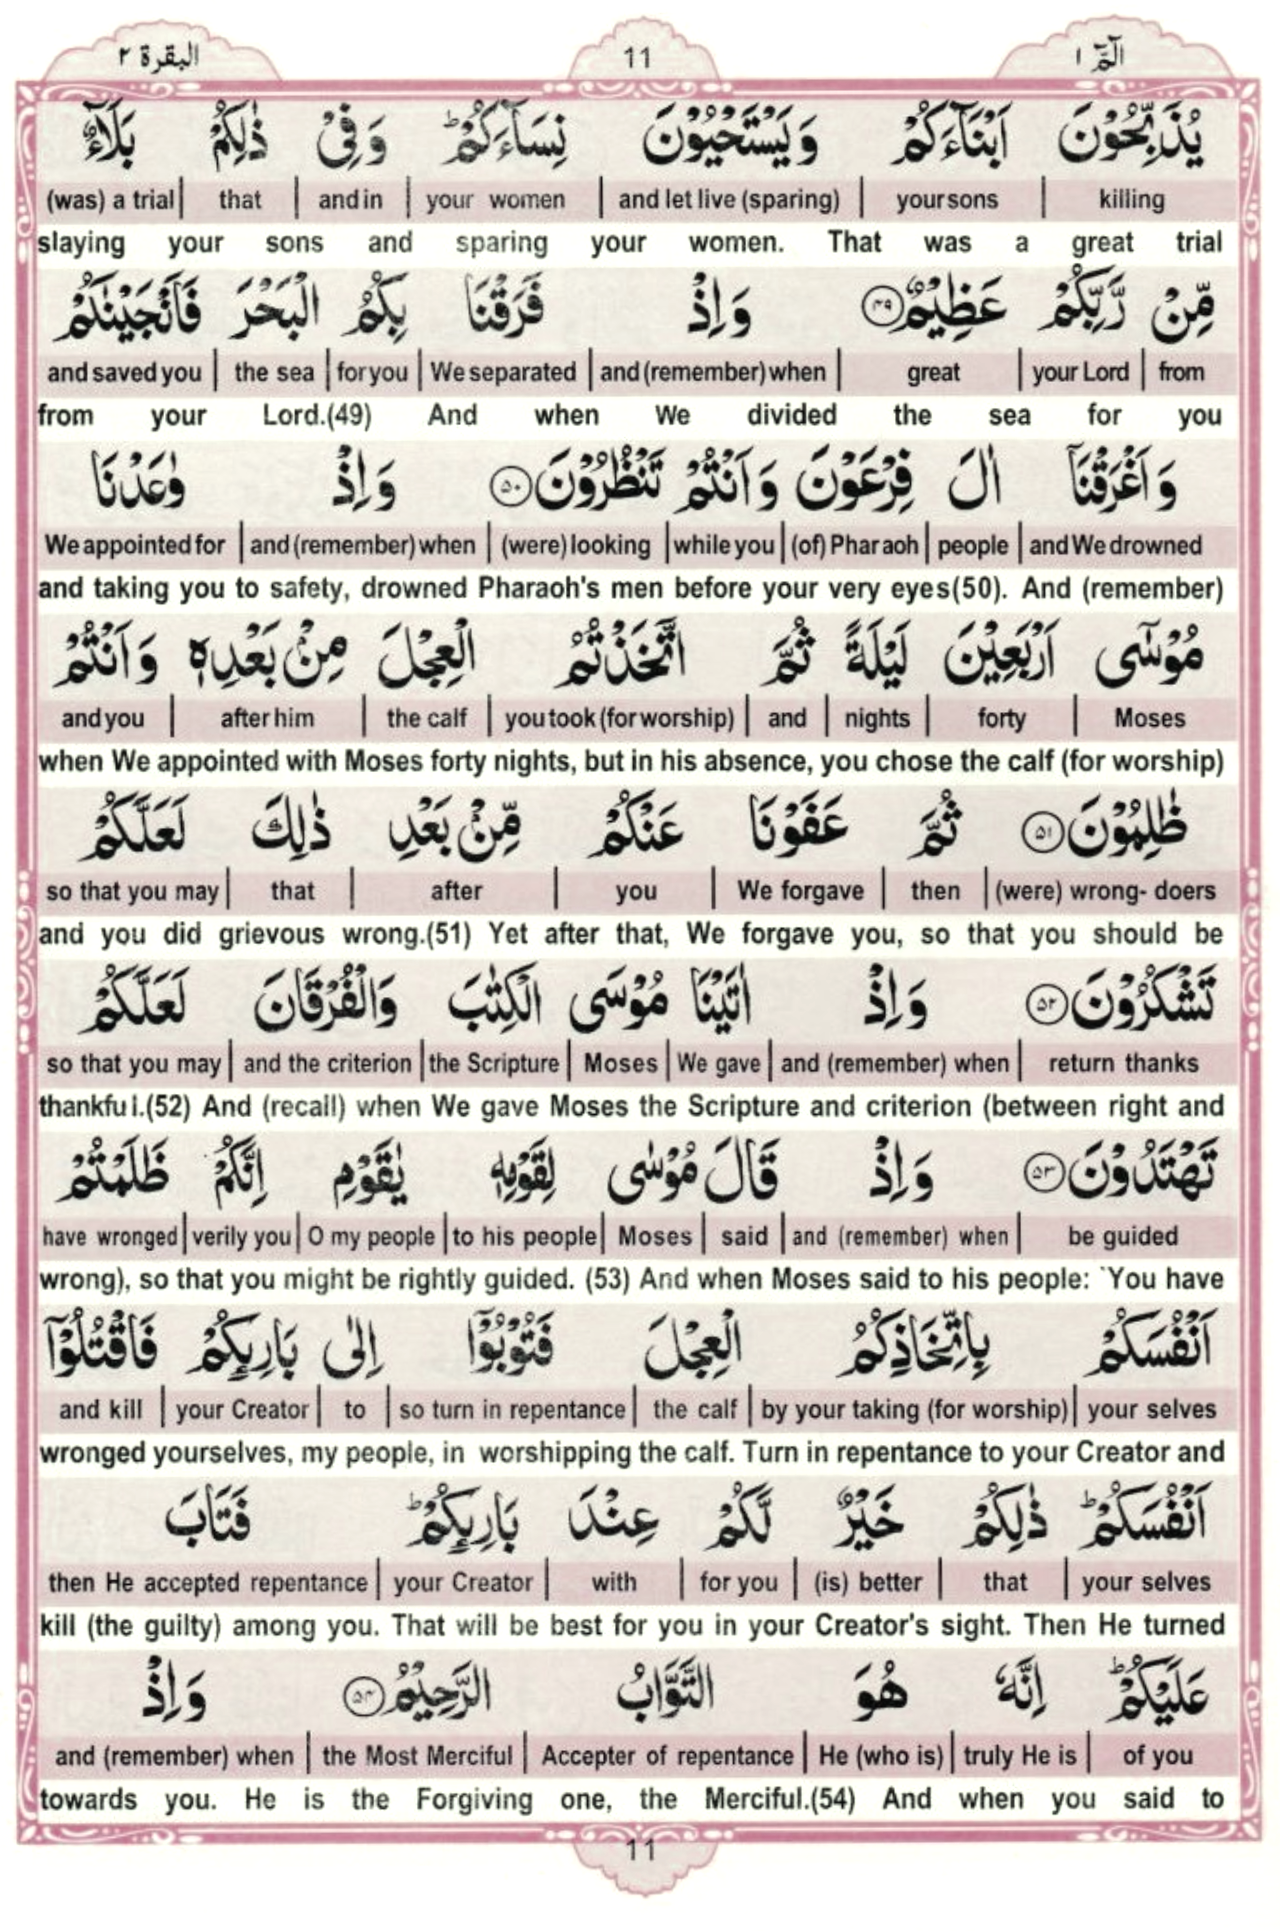 الٓمّٓ ١
11
البقرة ٢
يُذَبِّحُوْنَ اَبْنَآءَكُمْ وَيَسْتَحْيُوْنَ نِسَآءَكُمْ ؕ وَفِیْ ذٰلِكُمْ بَلَآءٌ
(was) a trial | that | and in | your women | and let live (sparing) | your sons | killing
slaying your sons and sparing your women. That was a great trial
مِّنْ رَّبِّكُمْ عَظِيْمٌ ﴿۴۹﴾ وَاِذْ فَرَقْنَا بِكُمُ الْبَحْرَ فَاَنْجَيْنٰكُمْ
and saved you | the sea | for you | We separated | and (remember) when | great | your Lord | from
from your Lord.(49) And when We divided the sea for you
وَاَغْرَقْنَاۤ اٰلَ فِرْعَوْنَ وَاَنْتُمْ تَنْظُرُوْنَ ﴿۵۰﴾ وَاِذْ وٰعَدْنَا
We appointed for | and (remember) when | (were) looking | while you | (of) Pharaoh | people | and We drowned
and taking you to safety, drowned Pharaoh's men before your very eyes(50). And (remember)
مُوْسٰۤى اَرْبَعِيْنَ لَيْلَةً ثُمَّ اتَّخَذْتُمُ الْعِجْلَ مِنْۢ بَعْدِهٖ وَاَنْتُمْ
and you | after him | the calf | you took (for worship) | and | nights | forty | Moses
when We appointed with Moses forty nights, but in his absence, you chose the calf (for worship)
ظٰلِمُوْنَ ﴿۵۱﴾ ثُمَّ عَفَوْنَا عَنْكُمْ مِّنْۢ بَعْدِ ذٰلِكَ لَعَلَّكُمْ
so that you may | that | after | you | We forgave | then | (were) wrong- doers
and you did grievous wrong.(51) Yet after that, We forgave you, so that you should be
تَشْكُرُوْنَ ﴿۵۲﴾ وَاِذْ اٰتَيْنَا مُوْسَى الْكِتٰبَ وَالْفُرْقَانَ لَعَلَّكُمْ
so that you may | and the criterion | the Scripture | Moses | We gave | and (remember) when | return thanks
thankful.(52) And (recall) when We gave Moses the Scripture and criterion (between right and
تَهْتَدُوْنَ ﴿۵۳﴾ وَاِذْ قَالَ مُوْسٰى لِقَوْمِهٖ يٰقَوْمِ اِنَّكُمْ ظَلَمْتُمْ
have wronged | verily you | O my people | to his people | Moses | said | and (remember) when | be guided
wrong), so that you might be rightly guided. (53) And when Moses said to his people: `You have
اَنْفُسَكُمْ بِاتِّخَاذِكُمُ الْعِجْلَ فَتُوْبُوْۤا اِلٰى بَارِىِٕكُمْ فَاقْتُلُوْۤا
and kill | your Creator | to | so turn in repentance | the calf | by your taking (for worship) | your selves
wronged yourselves, my people, in worshipping the calf. Turn in repentance to your Creator and
اَنْفُسَكُمْ ؕ ذٰلِكُمْ خَيْرٌ لَّكُمْ عِنْدَ بَارِىِٕكُمْ ؕ فَتَابَ
then He accepted repentance | your Creator | with | for you | (is) better | that | your selves
kill (the guilty) among you. That will be best for you in your Creator's sight. Then He turned
عَلَيْكُمْ ؕ اِنَّهٗ هُوَ التَّوَّابُ الرَّحِيْمُ ﴿۵۴﴾ وَاِذْ
and (remember) when | the Most Merciful | Accepter of repentance | He (who is) | truly He is | of you
towards you. He is the Forgiving one, the Merciful.(54) And when you said to
11